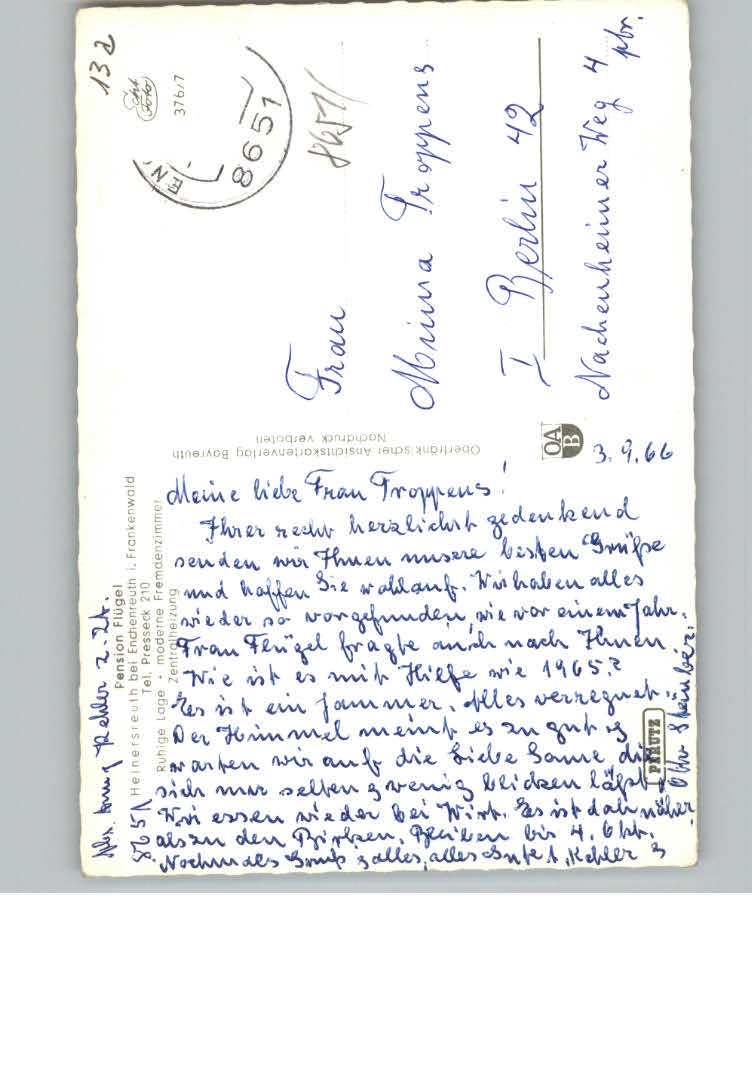 13a
Echt Foto
376/7
EN
8651
8651
Frau
Minna Troppens
I Berlin 42
Nachenheimer Weg 4
ptr.
Oberfränkischer Ansichtskartenverlag Bayreuth
Nachdruck verboten
OA
B
PERUTZ
Abs. Kehler z. Zt.
8651
Pension Flügel
Heinersreuth bei Enchenreuth i. Frankenwald
Tel. Presseck 210
Ruhige Lage • moderne Fremdenzimmer
Zentralheizung
3.9.66
Meine liebe Frau Troppens!
Ihrer recht herzlichst gedenkend
senden wir Ihnen unsere besten Grüße
und hoffen Sie wohlauf. Wir haben alles
wieder so vorgefunden, wie vor einem Jahr.
Frau Flügel fragte auch nach Ihnen.
Wie ist es mit Hilfe wie 1965?
Es ist ein Jammer. Alles verregnet.
Der Himmel meint es zu gut &
warten wir auf die liebe Sonne, die
sich nur selten & wenig blicken läßt.
Wir essen wieder bei Wirt. Es ist dah näher
als zu den Birken. Bleiben bis 4. Okt.
Nochmals Gruß & alles, alles Gute A. Kehler &
Otto Steinber